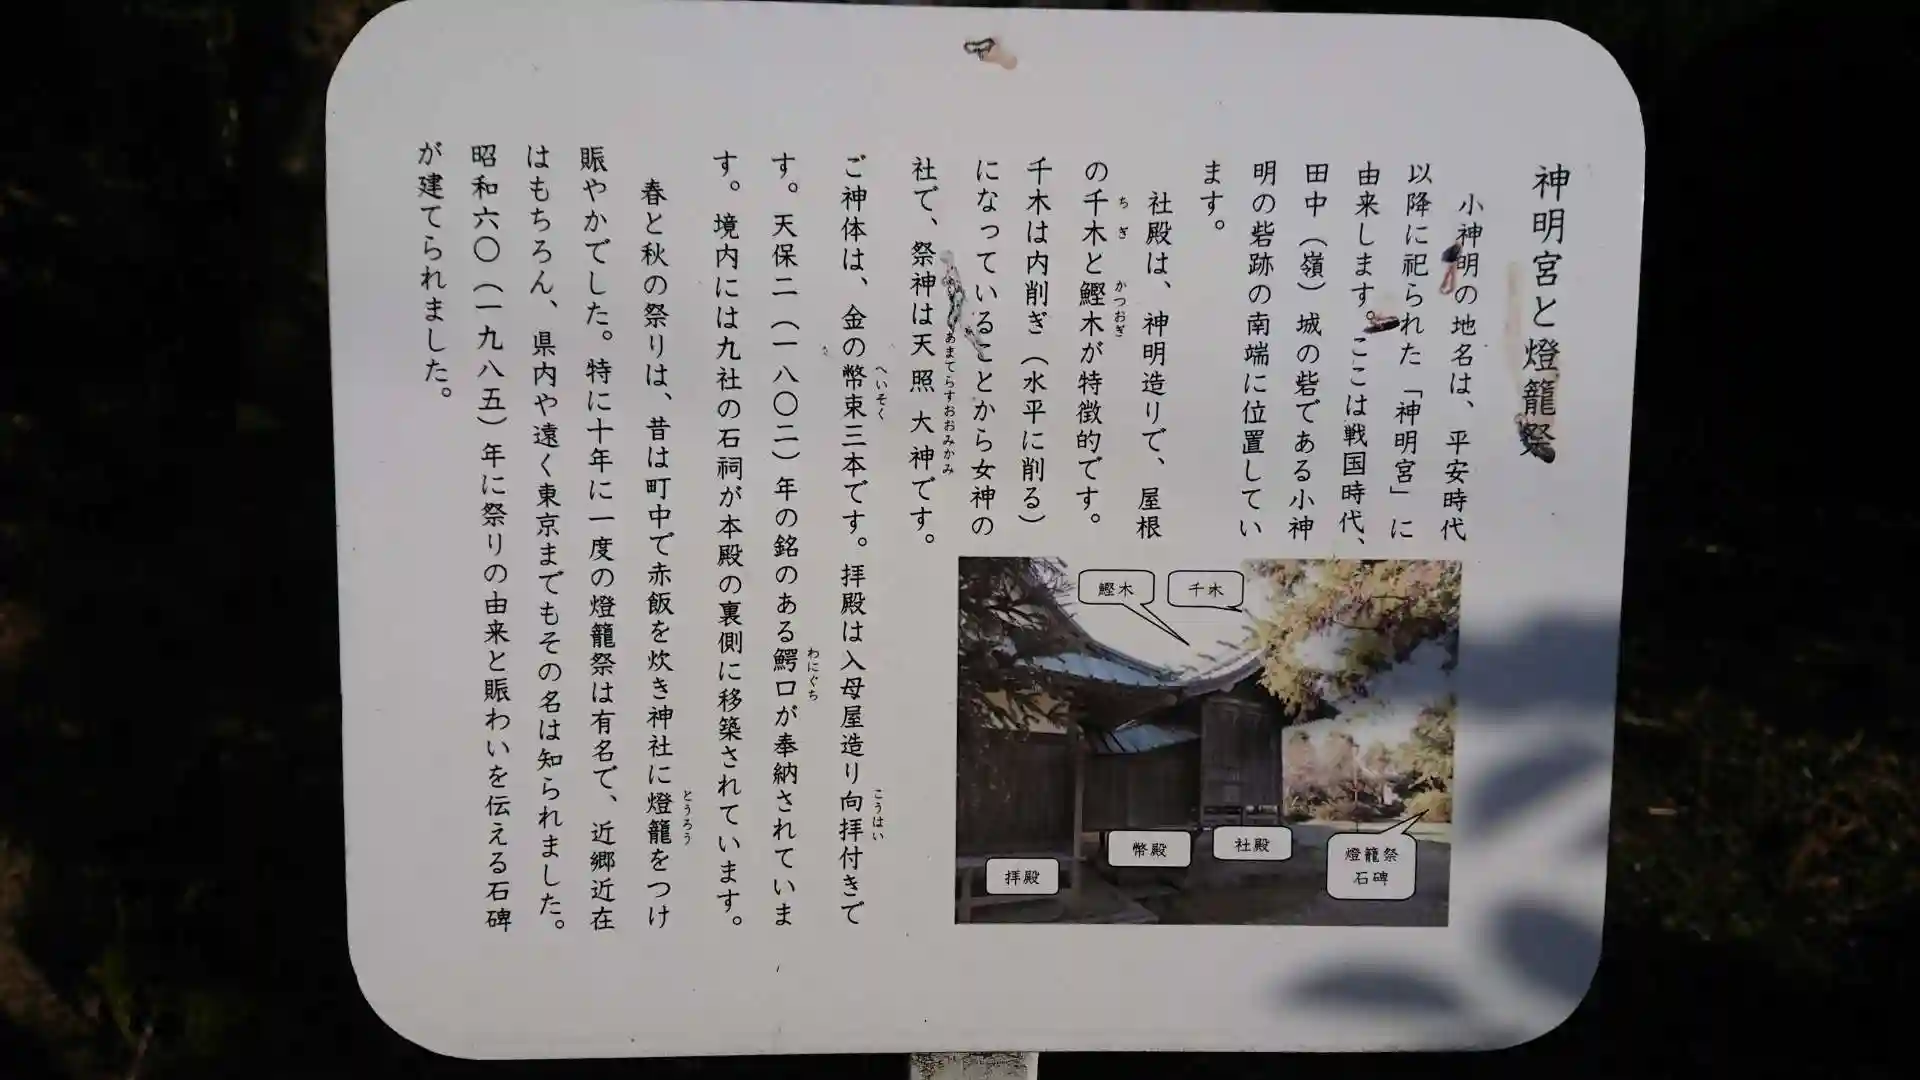 神明宮と燈籠祭
小神明の地名は、平安時代
以降に祀られた「神明宮」に
由来します。ここは戦国時代、
田中（嶺）城の砦である小神
明の砦跡の南端に位置してい
ます。
社殿は、神明造りで、屋根
の千木と鰹木が特徴的です。
ちぎ
かつおぎ
千木は内削ぎ（水平に削る）
になっていることから女神の
社で、祭神は天照大神です。
あまてらすおおみかみ
ご神体は、金の幣束三本です。拝殿は入母屋造り向拝付きで
へいそく
こうはい
す。天保二（一八〇二）年の銘のある鰐口が奉納されていま
わにぐち
す。境内には九社の石祠が本殿の裏側に移築されています。
春と秋の祭りは、昔は町中で赤飯を炊き神社に燈籠をつけ
とうろう
賑やかでした。特に十年に一度の燈籠祭は有名で、近郷近在
はもちろん、県内や遠く東京までもその名は知られました。
昭和六〇（一九八五）年に祭りの由来と賑わいを伝える石碑
が建てられました。
鰹木
千木
拝殿
幣殿
社殿
燈籠祭
石碑